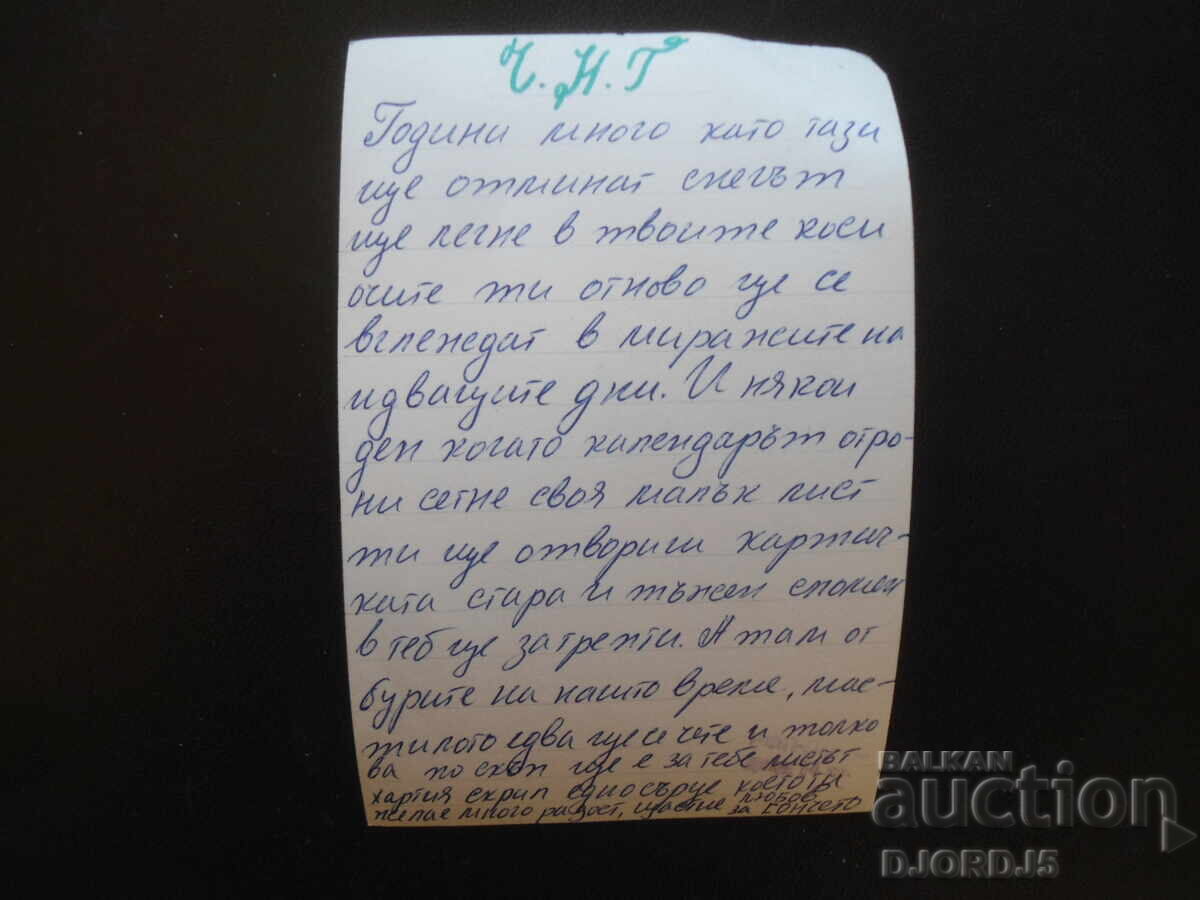 Ч.Н.Г
Години много като тази
ще отминат снегът
ще легне в твоите коси
очите ти отново ще се
вглеждат в миражите на
идващите дни. И някои
ден когато календарът отро-
ни сетне своя малък лист
ти ще отвориш картич-
ката стара и тъжен спомен
в теб ще затрепти. А там от
бурите на нашто време, мас-
тилото едва ще се чете и толко
ва по скъп ще е за тебе листът
хартия скрил едно сърце което ти
желае много радост, щастие любов
за
BALKAN
auction
DJORDJ5